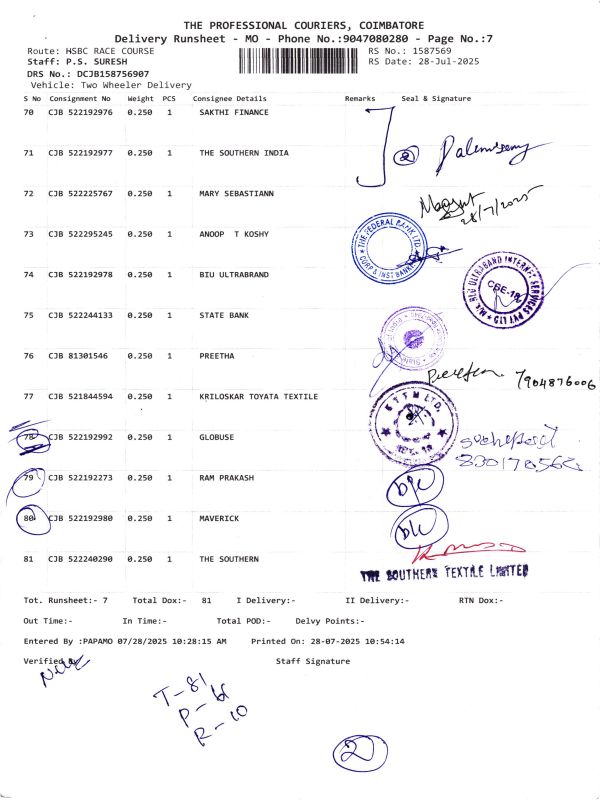 THE PROFESSIONAL COURIERS, COIMBATORE
Delivery Runsheet - MO - Phone No.:9047080280 - Page No.:7
Route: HSBC RACE COURSE RS No.: 1587569
Staff: P.S. SURESH RS Date: 28-Jul-2025
DRS No.: DCJB158756907
Vehicle: Two Wheeler Delivery
S No Consignment No Weight PCS Consignee Details Remarks Seal & Signature
70 CJB 522192976 0.250 1 SAKTHI FINANCE
71 CJB 522192977 0.250 1 THE SOUTHERN INDIA
2
72 CJB 522225767 0.250 1 MARY SEBASTIANN
28/7/2025
73 CJB 522295245 0.250 1 ANOOP T KOSHY
THE FEDERAL BANK LTD.
CORP & INST BANKING
74 CJB 522192978 0.250 1 BIU ULTRABRAND
CBE-18
75 CJB 522244133 0.250 1 STATE BANK
76 CJB 81301546 1 PREETHA
Preetha 7904876006
77 CJB 521844594 0.250 1 KRILOSKAR TOYATA TEXTILE
K T T M LTD.
78 CJB 522192992 0.250 1 GLOBUSE
79 CJB 522192273 0.250 1 RAM PRAKASH
80 CJB 522192980 0.250 1 MAVERICK
81 CJB 522240290 0.250 1 THE SOUTHERN
THE SOUTHERN TEXTILE LIMITED
Tot. Runsheet:- 7 Total Dox:- 81 I Delivery:- II Delivery:- RTN Dox:-
Out Time:- In Time:- Total POD:- Delvy Points:-
Entered By :PAPAMO 07/28/2025 10:28:15 AM Printed On: 28-07-2025 10:54:14
Verified By Staff Signature
T-81
R-10
2